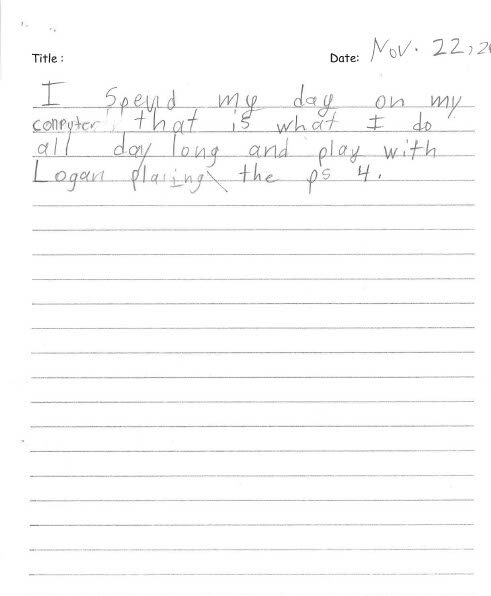 Title :
Date: Nov. 22, 20
I spend my day on my
computer, that is what I do
all day long and play with
Logan plaiing the ps 4.